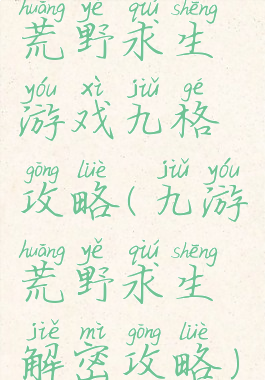 huāng yě qiú shēng
荒野求生
yóu xì jiǔ gé
游戏九格
gōng lüè jiǔ yóu
攻略(九游
huāng yě qiú shēng
荒野求生
jiě mì gōng lüè
解密攻略)